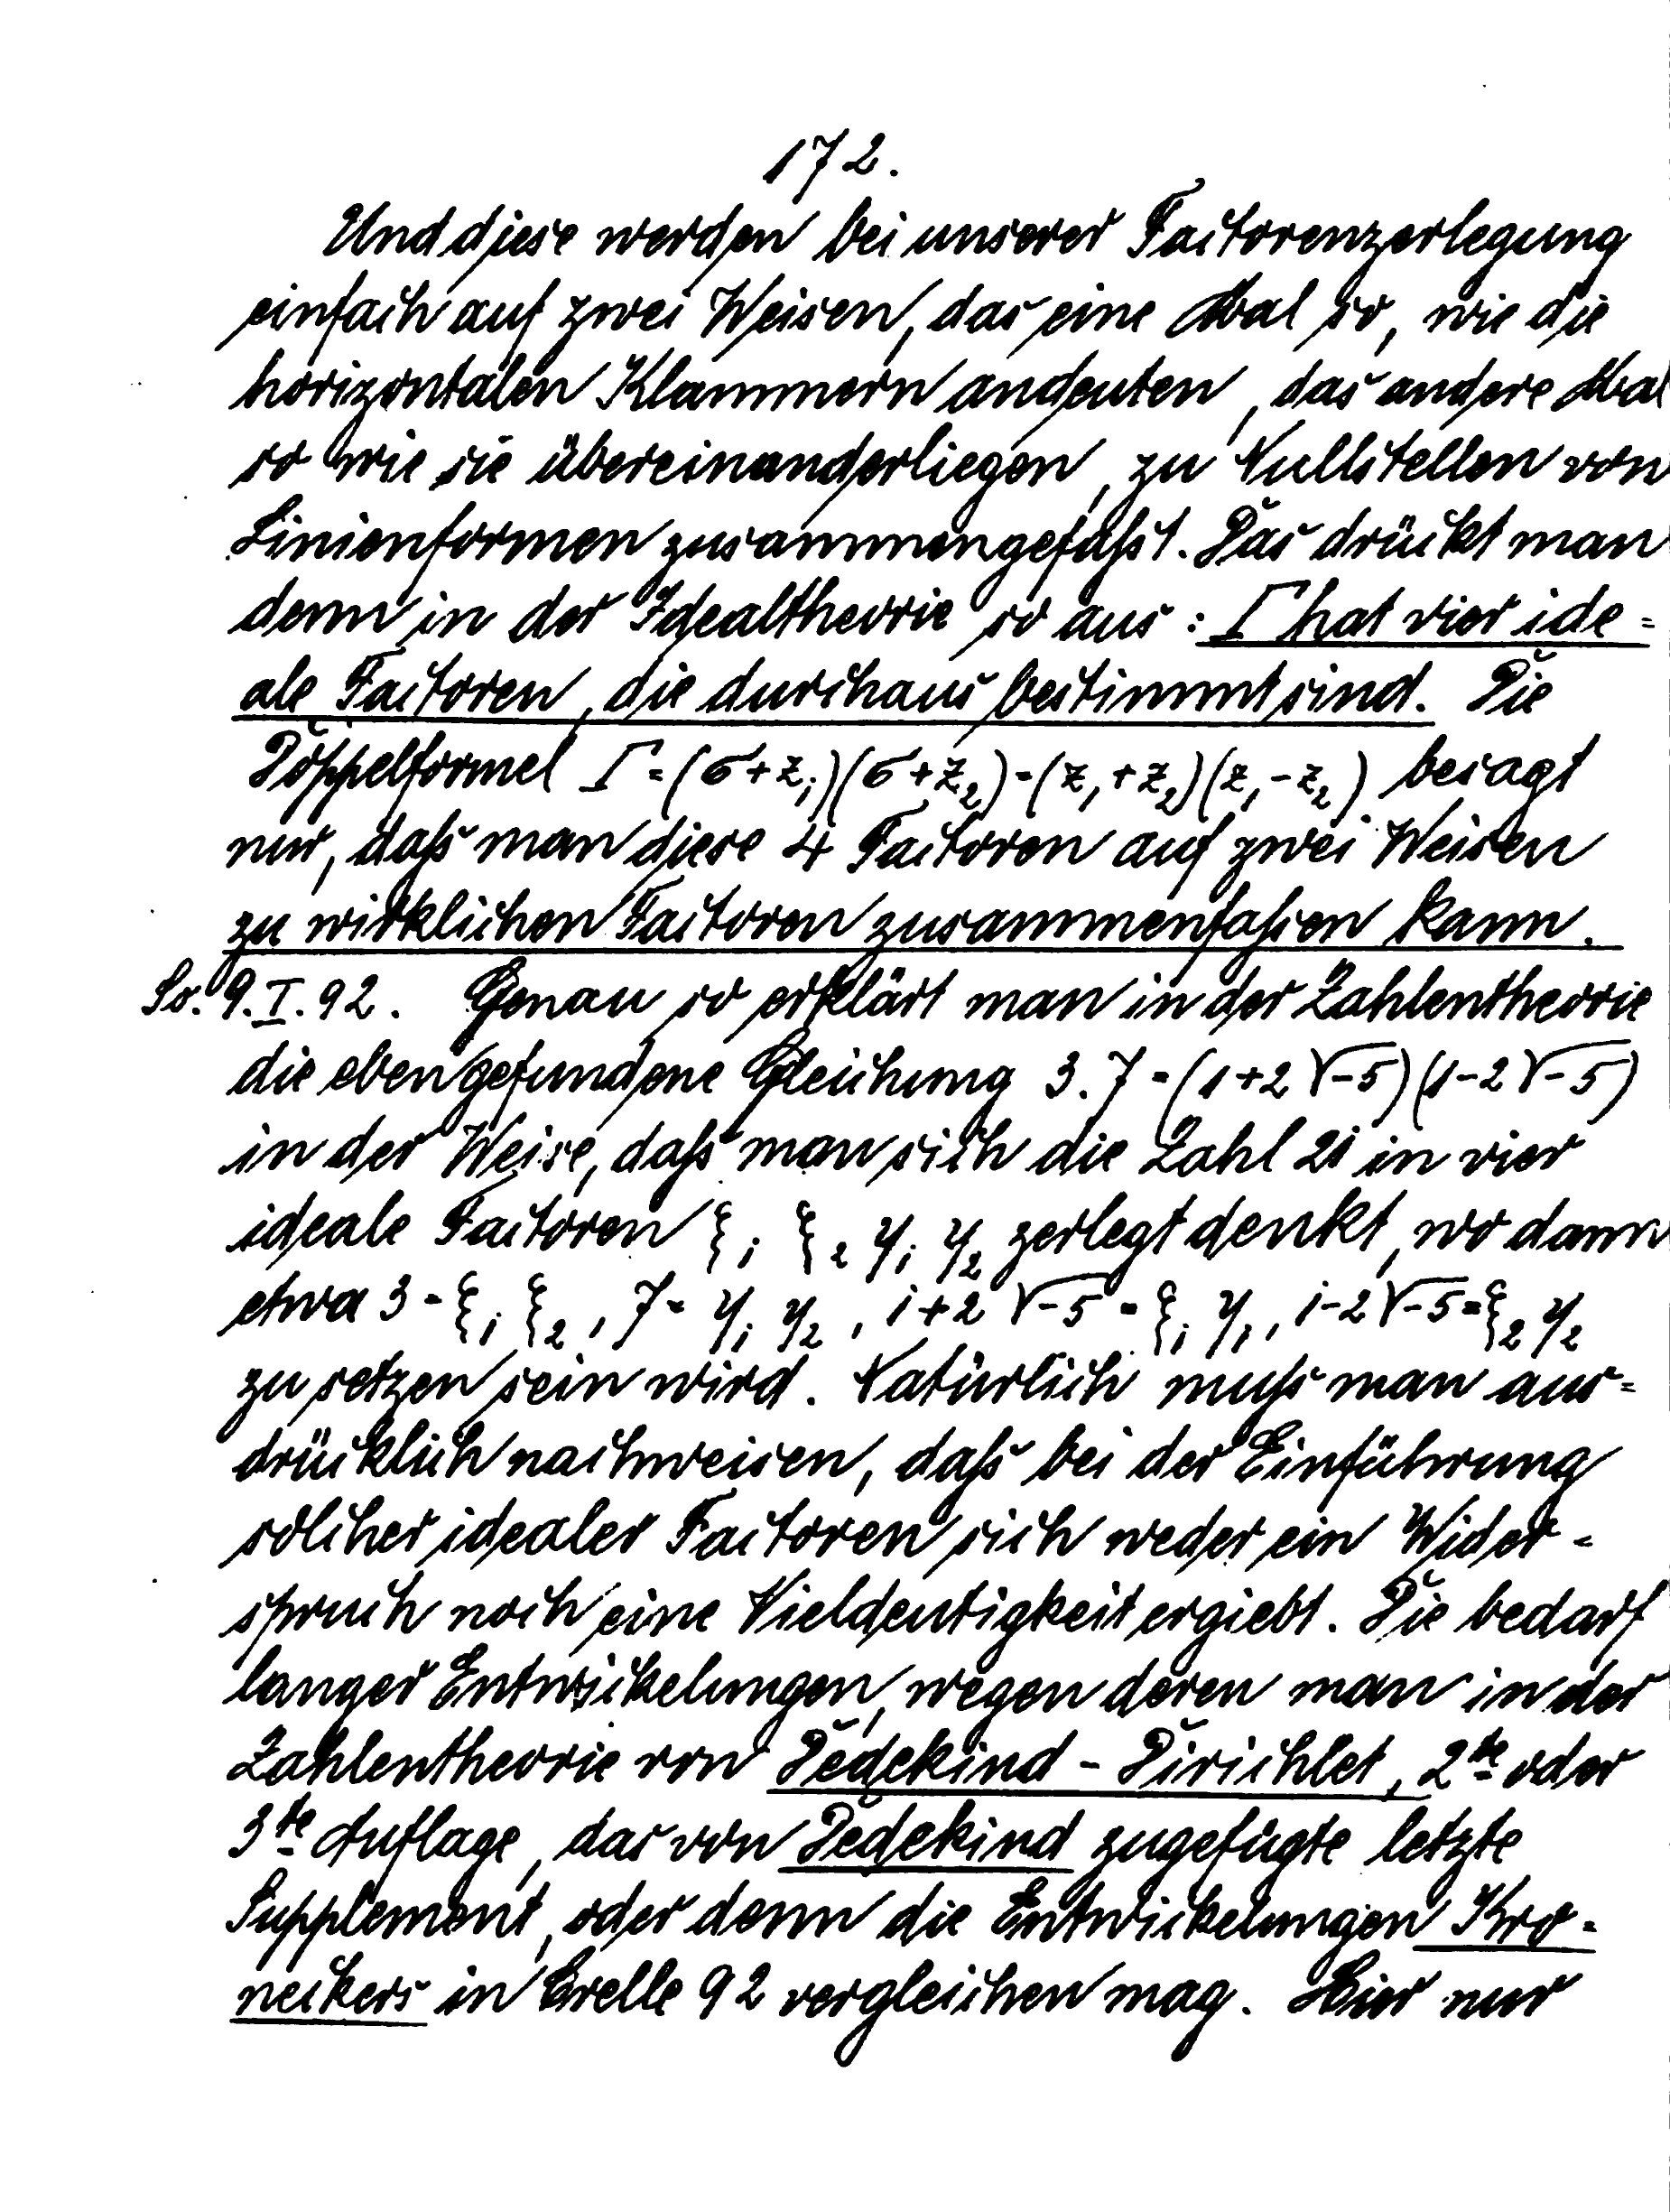 172.
Und diese werden bei unserer Factorenzerlegung
einfach auf zwei Weisen, das eine Mal so, wie die
horizontalen Klammern andeuten, das andere Mal
so wie sie übereinanderliegen, zu Nullstellen von
Linienformen zusammengefaßt. Das drückt man
denn in der Idealtheorie so aus: Γ hat vier ide=
ale Factoren, die durchaus bestimmt sind. Die
Doppelformel Γ = (σ+z₁)(σ+z₂) = (z₁+z₂)(z₁-z₂) besagt
nur, daß man diese 4 Factoren auf zwei Weisen
zu wirklichen Factoren zusammenfaßen kann.
So. 9. I. 92. Genau so erklärt man in der Zahlentheorie
die eben gefundene Gleichung 3.7 = (1+2√-5)(1-2√-5)
in der Weise, daß man sich die Zahl 21 in vier
ideale Factoren ξ₁ ξ₂ y₁ y₂ zerlegt denkt, wo dann
etwa 3 = ξ₁ ξ₂, 7 = y₁ y₂, 1+2√-5 = ξ₁ y₁, 1-2√-5 = ξ₂ y₂
zu setzen sein wird. Natürlich muß man aus=
drücklich nachweisen, daß bei der Einführung
solcher idealer Factoren sich weder ein Wider=
spruch noch eine Vieldeutigkeit ergiebt. Die bedarf
langer Entwickelungen, wegen deren man in der
Zahlentheorie von Dedekind - Dirichlet, 2te oder
3te Auflage, das von Dedekind zugefügte letzte
Supplement, oder denn die Entwickelungen Kro=
neckers in Crelle 92 vergleichen mag. Hier nur